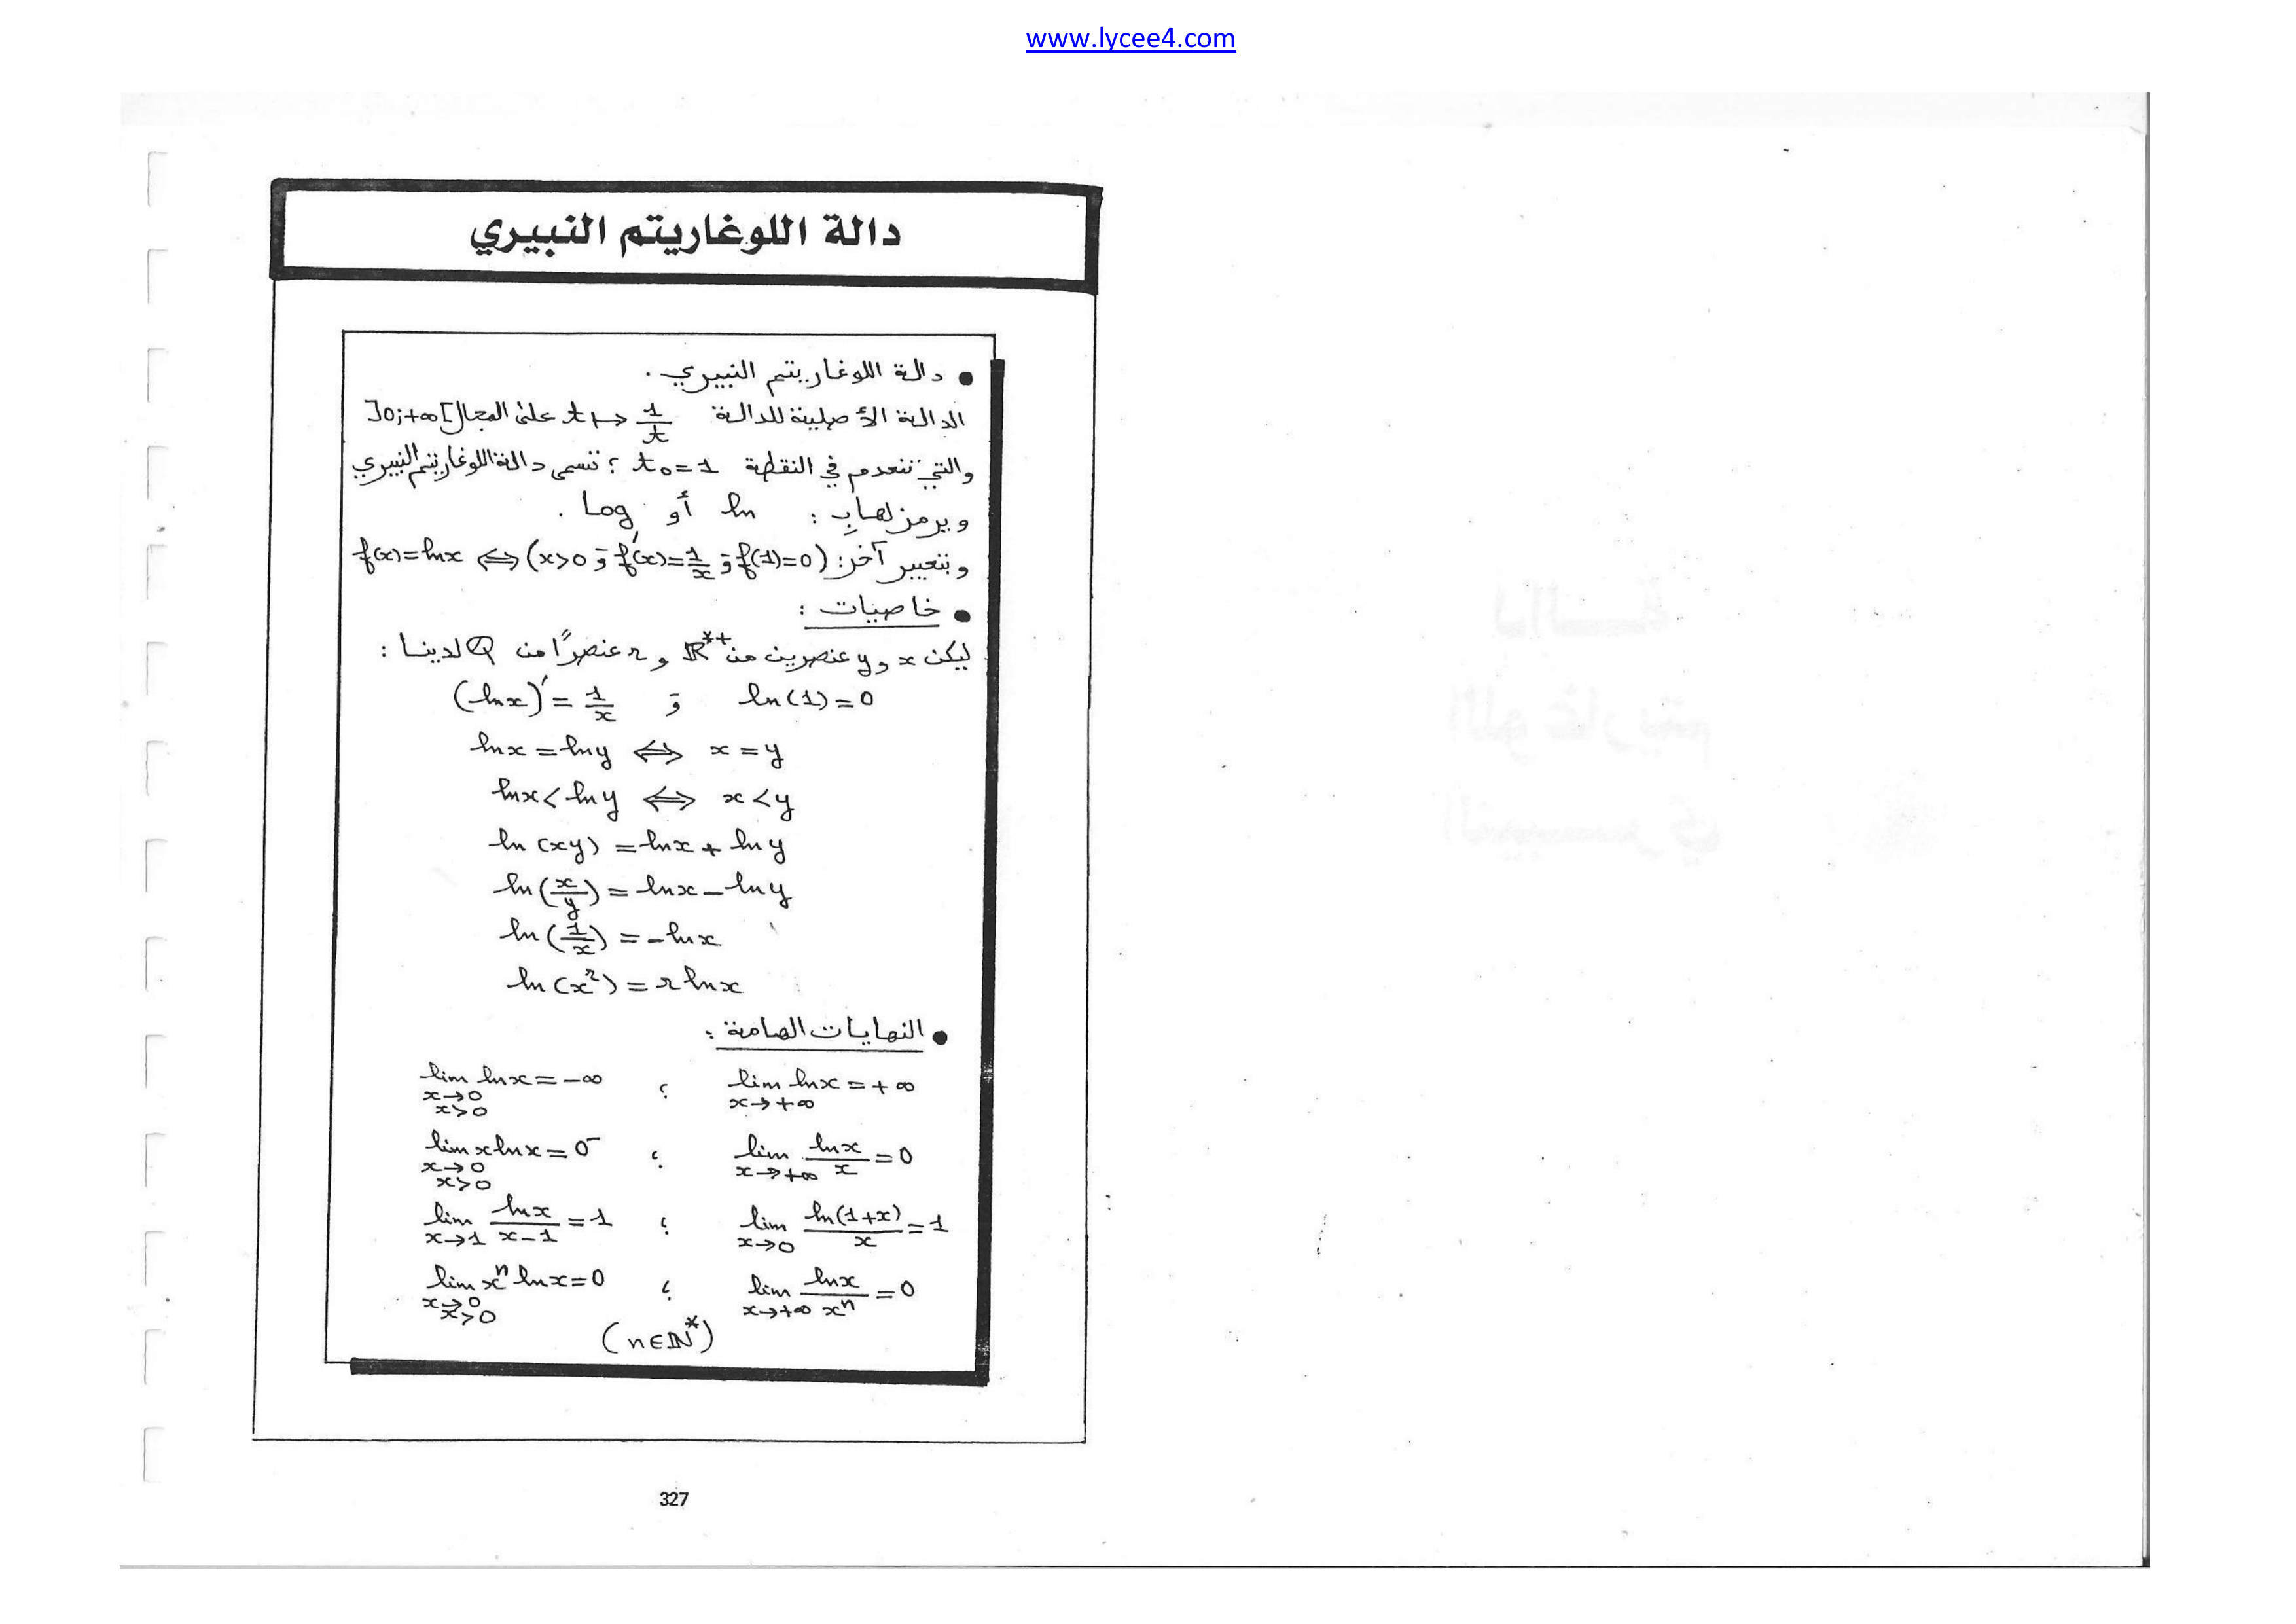 www.lycee4.com
دالة اللوغاريتم النبيري
• دالة اللوغاريتم النبيري .
الدالة الأصلية للدالة t ↦ 1/t على المجال ]0;+∞[
والتي تنعدم في النقطة t₀ = 1 ؛ تسمى دالة اللوغاريتم النبيري
ويرمز لها بِ : ln أو Log .
وبتعبير آخر : f(x) = lnx ⇔ (x>0 و f'(x) = 1/x و f(1)=0)
• خاصيات :
ليكن x و y عنصرين من ℝ*⁺ و r عنصرًا من ℚ لدينا :
(lnx)' = 1/x و ln(1) = 0
lnx = lny ⇔ x = y
lnx < lny ⇔ x < y
ln(xy) = lnx + lny
ln(x/y) = lnx - lny
ln(1/x) = -lnx
ln(x^r) = r lnx
• النهايات الهامة :
lim lnx = -∞ ؛ lim lnx = +∞
x→0 x→+∞
x>0
lim xlnx = 0⁻ ؛ lim lnx/x = 0
x→0 x→+∞
x>0
lim lnx/(x-1) = 1 ؛ lim ln(1+x)/x = 1
x→1 x→0
lim xⁿ lnx = 0 ؛ lim lnx/xⁿ = 0
x→0 x→+∞
x>0
(n∈ℕ*)
327
دالة
اللوغاريتم
النبيري